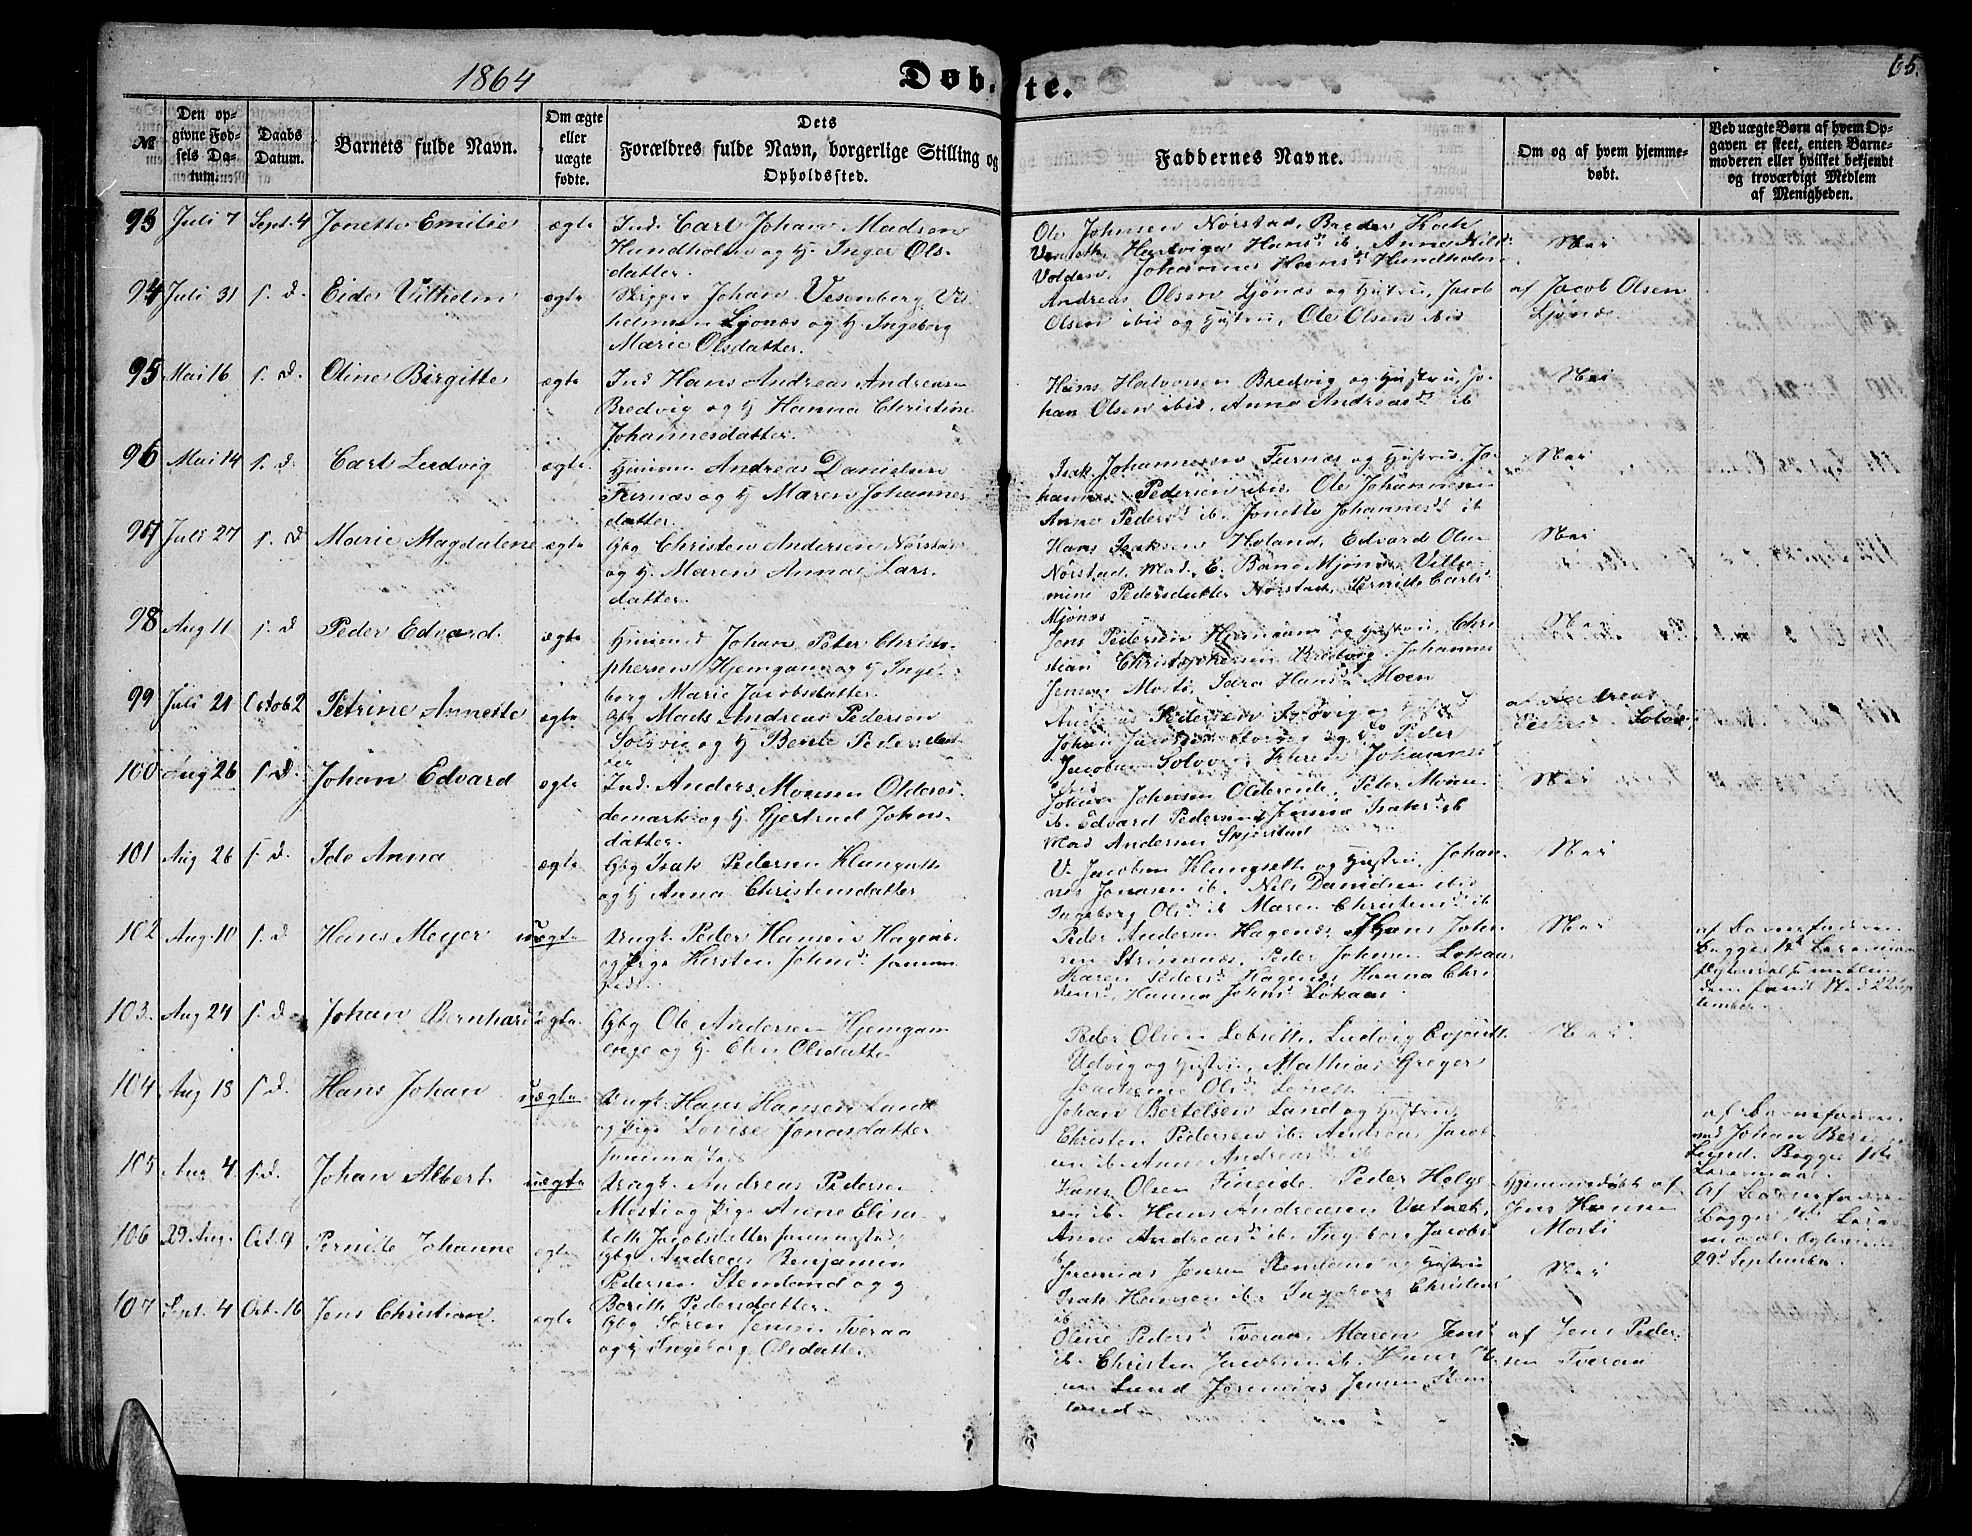 1864
Døbte.
65.
№
Den opgivne Fødsels Datum.
Daabs Datum.
Barnets fulde Navn.
Om ægte eller uægte fødte.
Dets
Forældres fulde Navn, borgerlige Stilling og
Opholdssted.
Faddernes Navne.
Om og af hvem hjemmedøbt.
Ved uægte Børn af hvem Opgaven er skeet, enten Barnemoderen eller hvilket bekjendt og troværdigt Medlem af Menigheden.
93 Juli 7 Sept. 4 Jonette Emilie ægte
Ind. Carl Johan Madsen
Hundholm og H. Inger Ols-
datter.
Ole Johnsen Nørstad, Breder Koch
Hartvigа Hans d. ib. Anna Nilsd.
Volden, Johannes Hansd. Hundholm
Nei
94 Juli 31 s. D. Eider Vilhelm ægte
Skipper Johan Vesenberg Vil-
helmsen Ljønæs og H. Ingeborg
Marie Olsdatter.
Andreas Olsen Ljønæs og Hustru, Jacob
Olsen ibid og Hustru, Ole Olsen ibid
af Jacob Olsen
Ljønæs
95 Mai 16 s. D. Oline Birgitte ægte
Ind Hans Andreas Andreasen
Bredvig og H Hanna Christine
Johannesdatter.
Hans Halvorsen Bredvig og Hustru, Jo-
han Olsen ibid, Anna Andreasd. ib
Nei
96 Mai 14 s. D. Carl Ludvig ægte
Andreas Danielsen
Furnæs og H Maren Johannes
datter.
Isak Johannesen Furnæs og Hustru, Jo-
hannes Pedersen ibid, Ole Johannesen
Anna Pedersd. ib. Jonette Johannesd. ib
Nei
97 Juli 27 s. D Marie Magdalene ægte
Gbg Christen Andersen Nørstad
og H. Maren Anna Lars-
datter.
Hans Isaksen Høland, Edvard Olsen
Nørstad, Mad. E. Bang Mjønæs, Vilhel-
mine Pedersdatter Nørstad, Pernille Carlsd.
Mjønæs
Nei
98 Aug 11 s. D Peder Edvard ægte
Johan Peter Christo-
phersen Hjemgam og H Inge-
borg Marie Jacobsdatter.
Jens Pedersen og Hustru, Chri-
stian Christophersen Bredvig, Johannes
Jensen Mosti, Sara Hansd. Moen
Nei
99 Juli 21 Octob 2 Petrine Annette ægte
Gbg Mads Andreas Pedersen
Solsvig og H Bente Pedersdat-
ter
Andreas Pedersen og Hustru
Peder
Jacobsen Johannes
af Andreas
100 Aug 26 s. D. Johan Edvard ægte
Ind. Anders Monsen Olderes-
demark og H. Gjertrud Johns-
datter.
Johan Johnsen Oldereide, Peter Monsen
ib. Edvard Pedersen, Jensine Isaksd. ib
Mad Andersen Skjerstad
Nei
101 Aug 26 s. D. Ide Anna ægte
Gbg Isak Pedersen Klungseth
og H Anna Christensdatter
Jacobsen Klungseth og Hustru, Johan-
nes Jonasen ib. Nils Danielsen ibid
Ingeborg Olsd. ib Maren Christensd. ib
Nei
102 Aug. 10 s. D Hans Meyer uægte
Ungk. Peder Hansen Hagenæs
og Pige Kersten Johnsd. sammen-
steds.
Peder Andersen Hagenæs, Hans John-
sen Strømnæs, Peder Johnsen Løkaas
Karen Pedersd. Hagenæs, Hanna Chri-
stensd., Hanna Johnsd. Løkaas
Nei
af Barnefaderen
Begges 1te Leiermaal
103. Aug 24 s. D Johan Bernhard ægte
Gbg Ole Andersen Hjemgam
og H. Elen Olsdatter
Peder Olsen, Ludvig
Udvig og Hustru, Mathias Greger
Nei
104 Aug 18 s. D. Hans Johan uægte
Ungk. Hans Hansen Lund
og Pige Lovise Jonasdatter
sammesteds
Johan Bertelsen Lund og Hustru,
Christen Pedersen ib. Andreas Jacob-
sen ib. Anne Andreasd. ib
af Barnefaderen
med Johan Ber
Lund. Begges 1te
Leiermaal.
105 Aug 4 s. D. Johan Albert uægte
Ungk. Andreas Pedersen
Mosti og Pige Anne Elisa-
beth Jacobsdatter sammesteds
Hans Olsen Fineide, Peder Helge-
sen ib. Hans Andreasen Vatnet,
Anne Andreasd. ib. Ingeborg Jacobsd.
ib
Hjemmedøbt af
Jens Hansen
Mosti
Af Barnefaderen
Begges 1te Leier-
maal.
29d September.
106 29 Aug. Oct. 9 Pernille Johanne ægte
Gbg Andreas Benjamin
Pedersen Stemland og H
Berith Pedersdatter.
Jeremias Jensen Stemland og Hustru
Isak Hansen ib. Ingeborg Christensd.
ib
Nei
107 Sept. 4 Oct. 16 Jens Christian. ægte
Gbg Søren Jensen Tveraa
og H Ingeborg Olsdatter.
Oline Pedersd. Tveraa, Maren Jensd.
ib. Christen Jacobsen ib. Hans Ol-
sen Lund Jeremias Jensen Stem-
land
af Jens Peder-
sen Tveraa